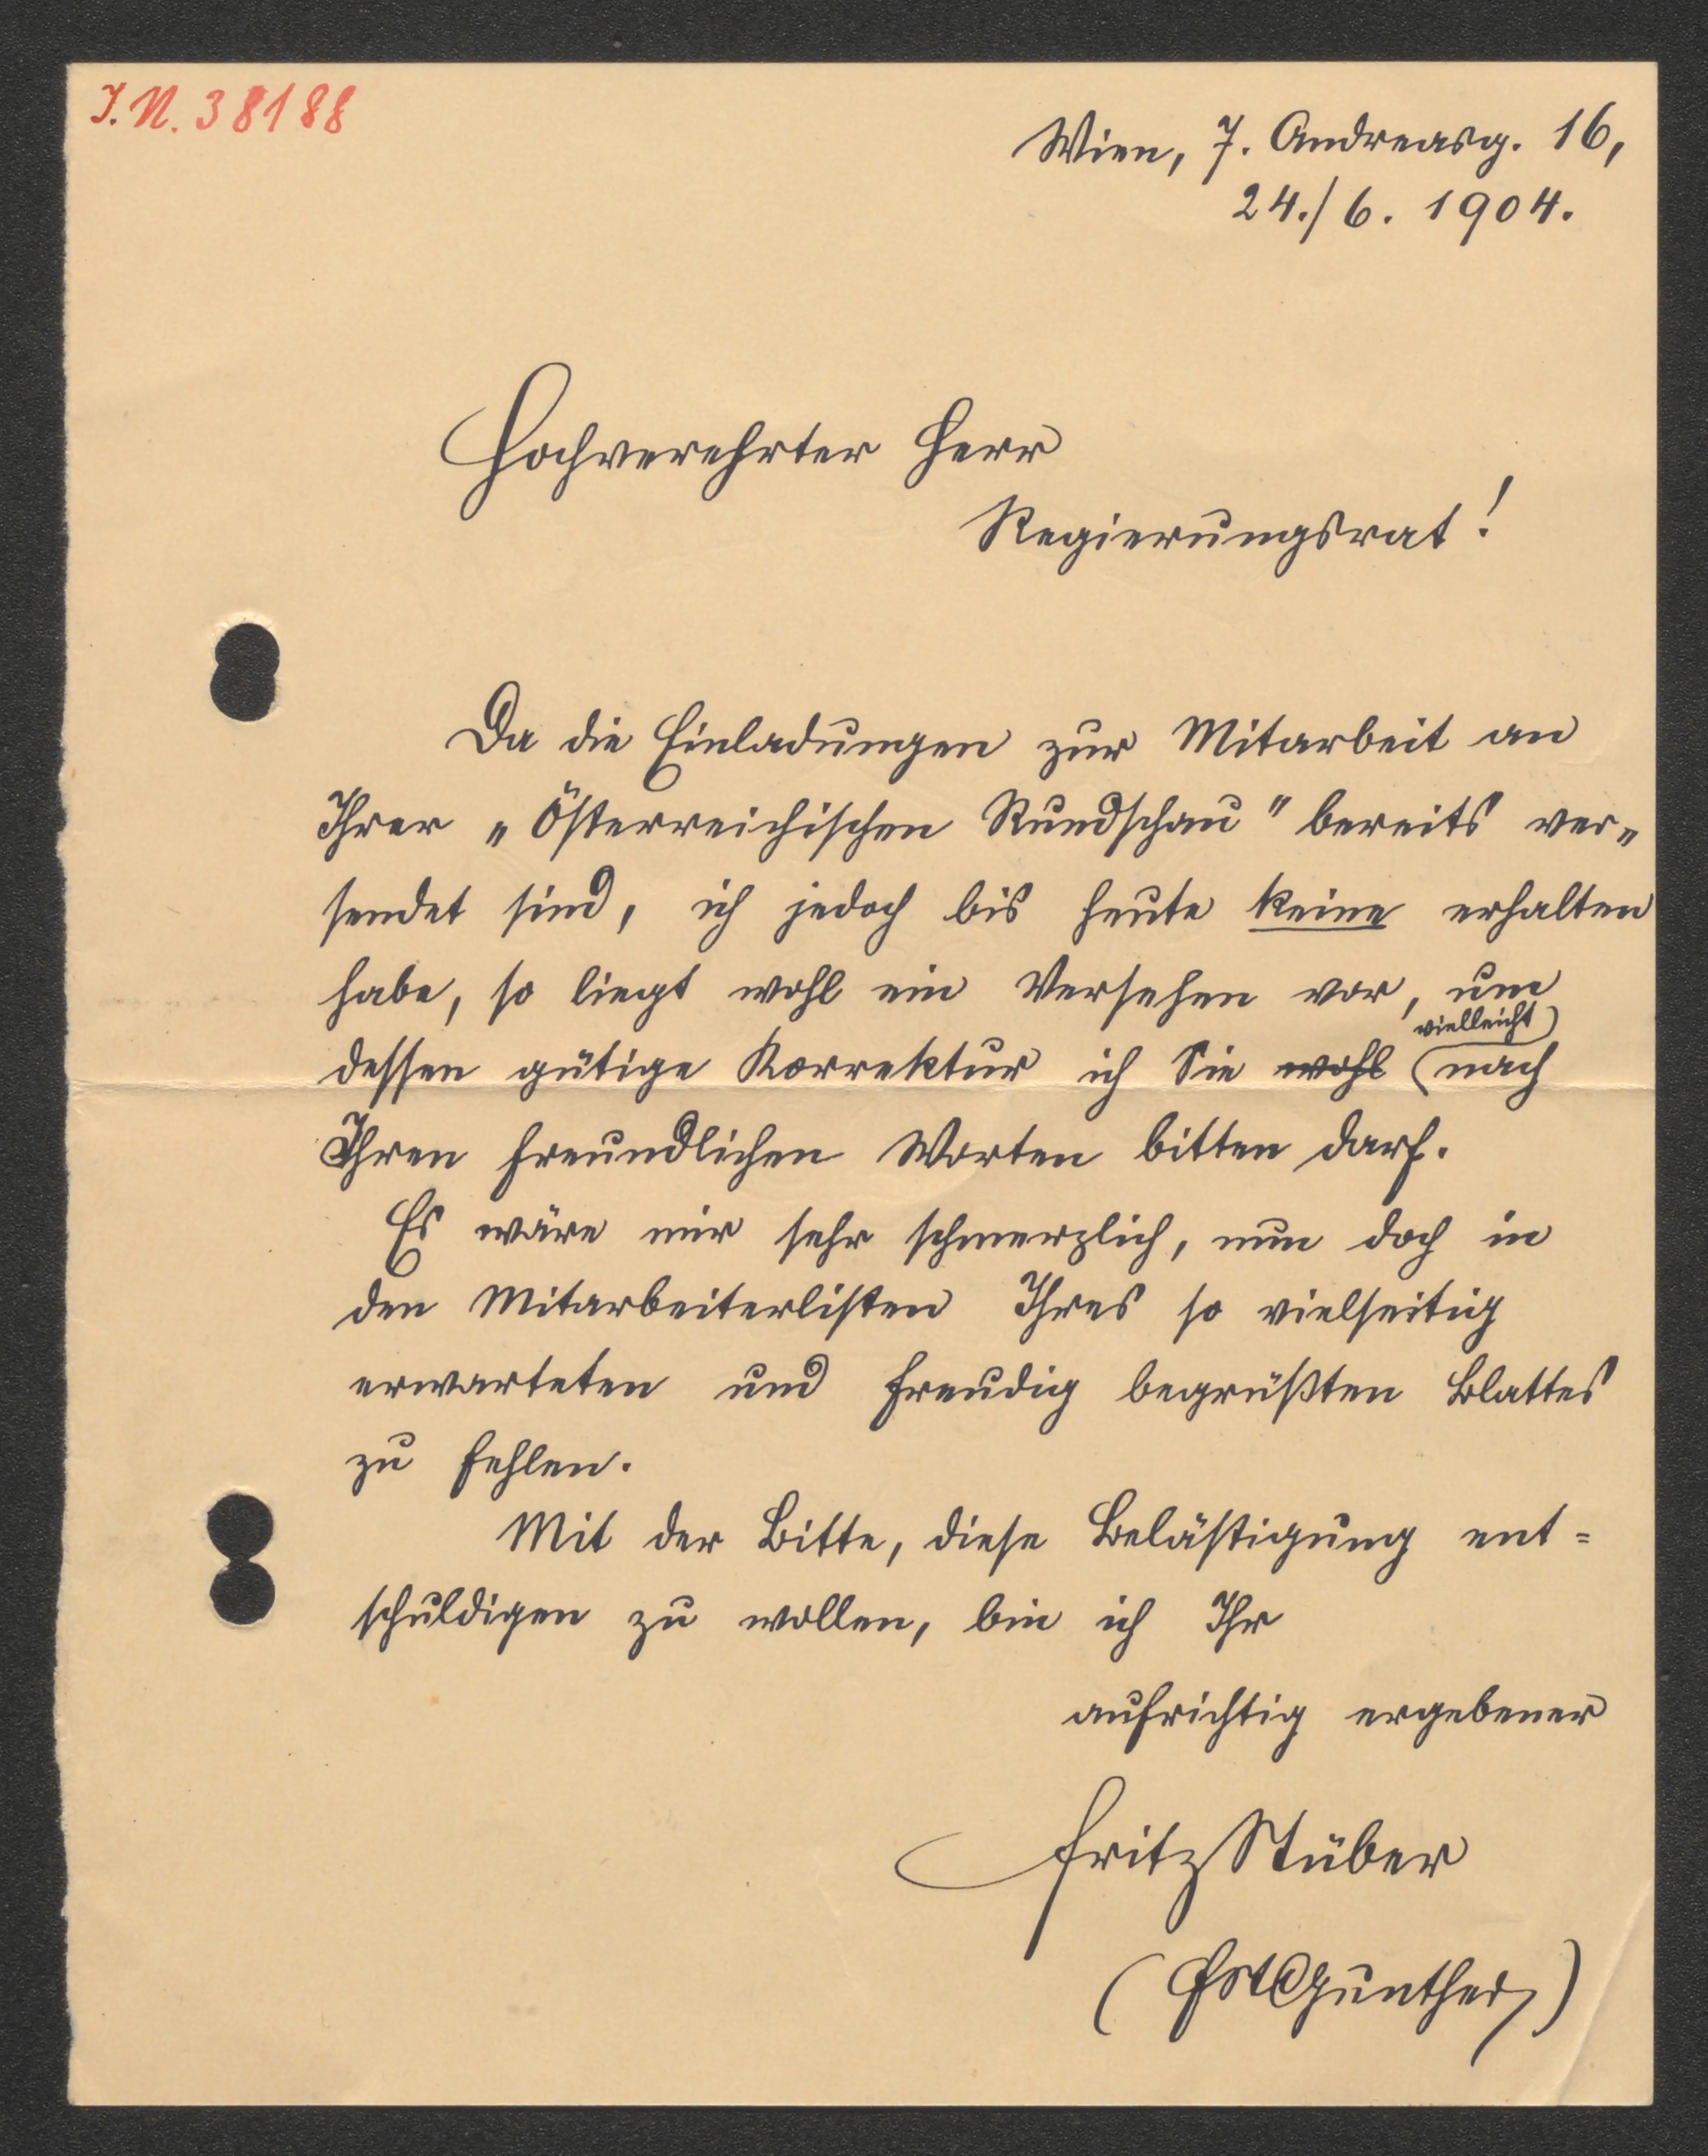 I.N. 38188
Wien, 7. Andreasg. 16,
24./6. 1904.
Hochverehrter Herr
Regierungsrat!
Da die Einladungen zur Mitarbeit an
Ihrer „Österreichischen Rundschau" bereits ver-
sendet sind, ich jedoch bis heute keine erhalten
habe, so liegt wohl ein Versehen vor, um
vielleicht
dessen gütige Korrektur ich Sie wohl nach
Ihren freundlichen Worten bitten darf.
Es wäre mir sehr schmerzlich, nun doch in
den Mitarbeiterlisten Ihres so vielseitig
erwarteten und freudig begrüßten Blattes
zu fehlen.
Mit der Bitte, diese Belästigung ent=
schuldigen zu wollen, bin ich Ihr
aufrichtig ergebener
Fritz Stüber
(
Gunther)